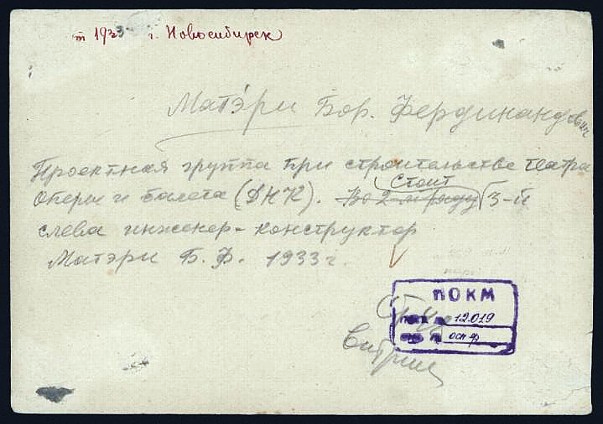 1933 г. Новосибирск
Матэри Бор. Фердинандович
Проектная группа при строительстве театра
Оперы и балета (ДНК). Во 2-м ряду стоит 3-й
слева инженер-конструктор
Матэри Б. Ф. 1933 г.
ПОКМ
12019
осн ф